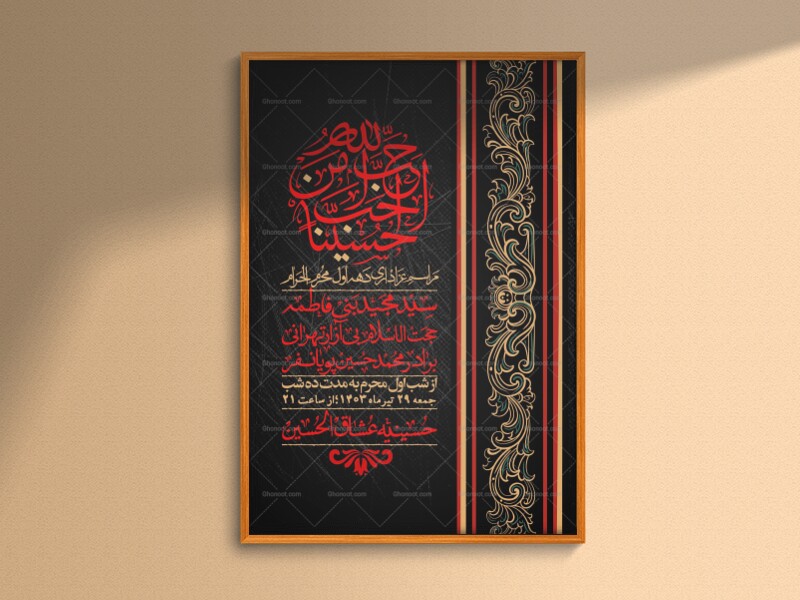 أحب الله من أحب حسينا
مراسم عزاداری دهه اول محرم الحرام
سید مجید بنی فاطمه
حجت الاسلام بی آزار تهرانی
برادر محمد حسین پویانفر
از شب اول محرم به مدت ده شب
جمعه ۲۹ تیر ماه ۱۴۰۳؛ از ساعت ۲۱
حسینیه عشاق الحسین
Ghonoot.com